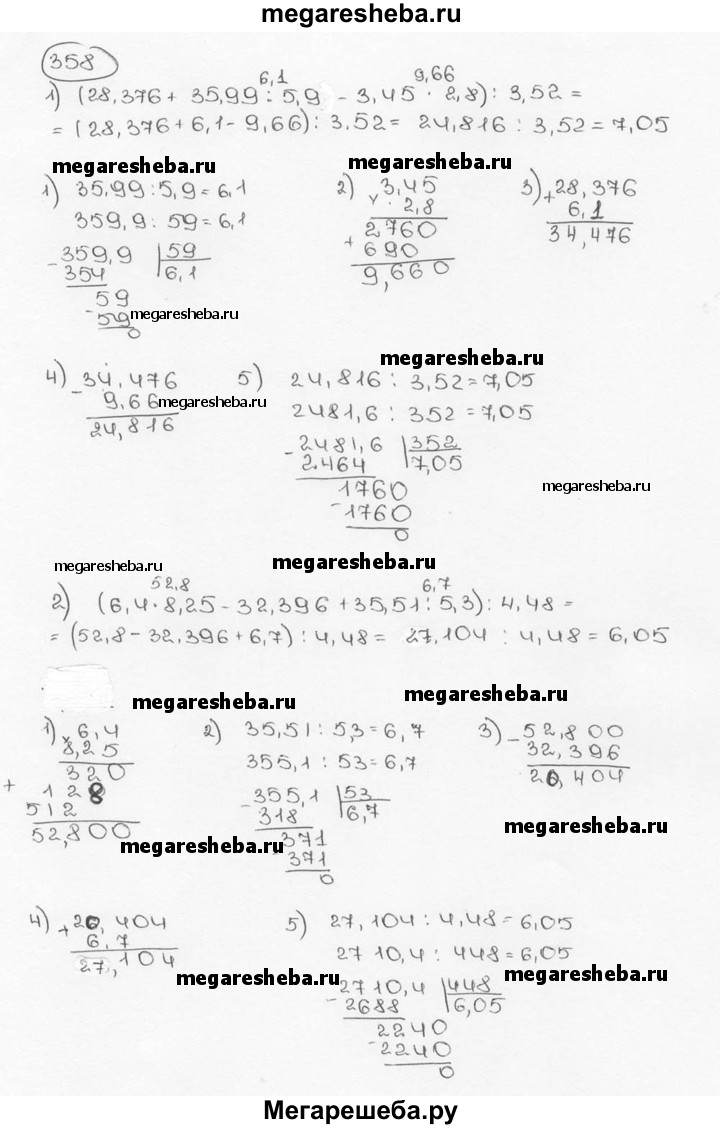 megaresheba.ru
358
6,1 9,66
1) (28,376 + 35,99 : 5,9 - 3,45 · 2,8) : 3,52 =
= (28,376 + 6,1 - 9,66) : 3,52 = 24,816 : 3,52 = 7,05
megaresheba.ru megaresheba.ru
1) 35,99 : 5,9 = 6,1
359,9 : 59 = 6,1
- 359,9 59
354 6,1
59
- 59
0
megaresheba.ru
2) 3,45
× 2,8
2760
+ 690
9,660
3) + 28,376
6,1
34,476
megaresheba.ru
4) - 34,476
9,66
24,816
megaresheba.ru
5) 24,816 : 3,52 = 7,05
2481,6 : 352 = 7,05
- 2481,6 352
2464 7,05
1760
- 1760
0
megaresheba.ru
megaresheba.ru megaresheba.ru
52,8 6,7
2) (6,4 · 8,25 - 32,396 + 35,51 : 5,3) : 4,48 =
= (52,8 - 32,396 + 6,7) : 4,48 = 27,104 : 4,48 = 6,05
megaresheba.ru megaresheba.ru
1) × 6,4
8,25
320
+ 128
512
52,800
megaresheba.ru
2) 35,51 : 5,3 = 6,7
355,1 : 53 = 6,7
- 355,1 53
318 6,7
371
- 371
0
3) - 52,800
32,396
20,404
megaresheba.ru
4) + 20,404
6,7
27,104
megaresheba.ru
5) 27,104 : 4,48 = 6,05
2710,4 : 448 = 6,05
megaresheba.ru
- 2710,4 448
2688 6,05
2240
- 2240
0
Мегарешеба.ру